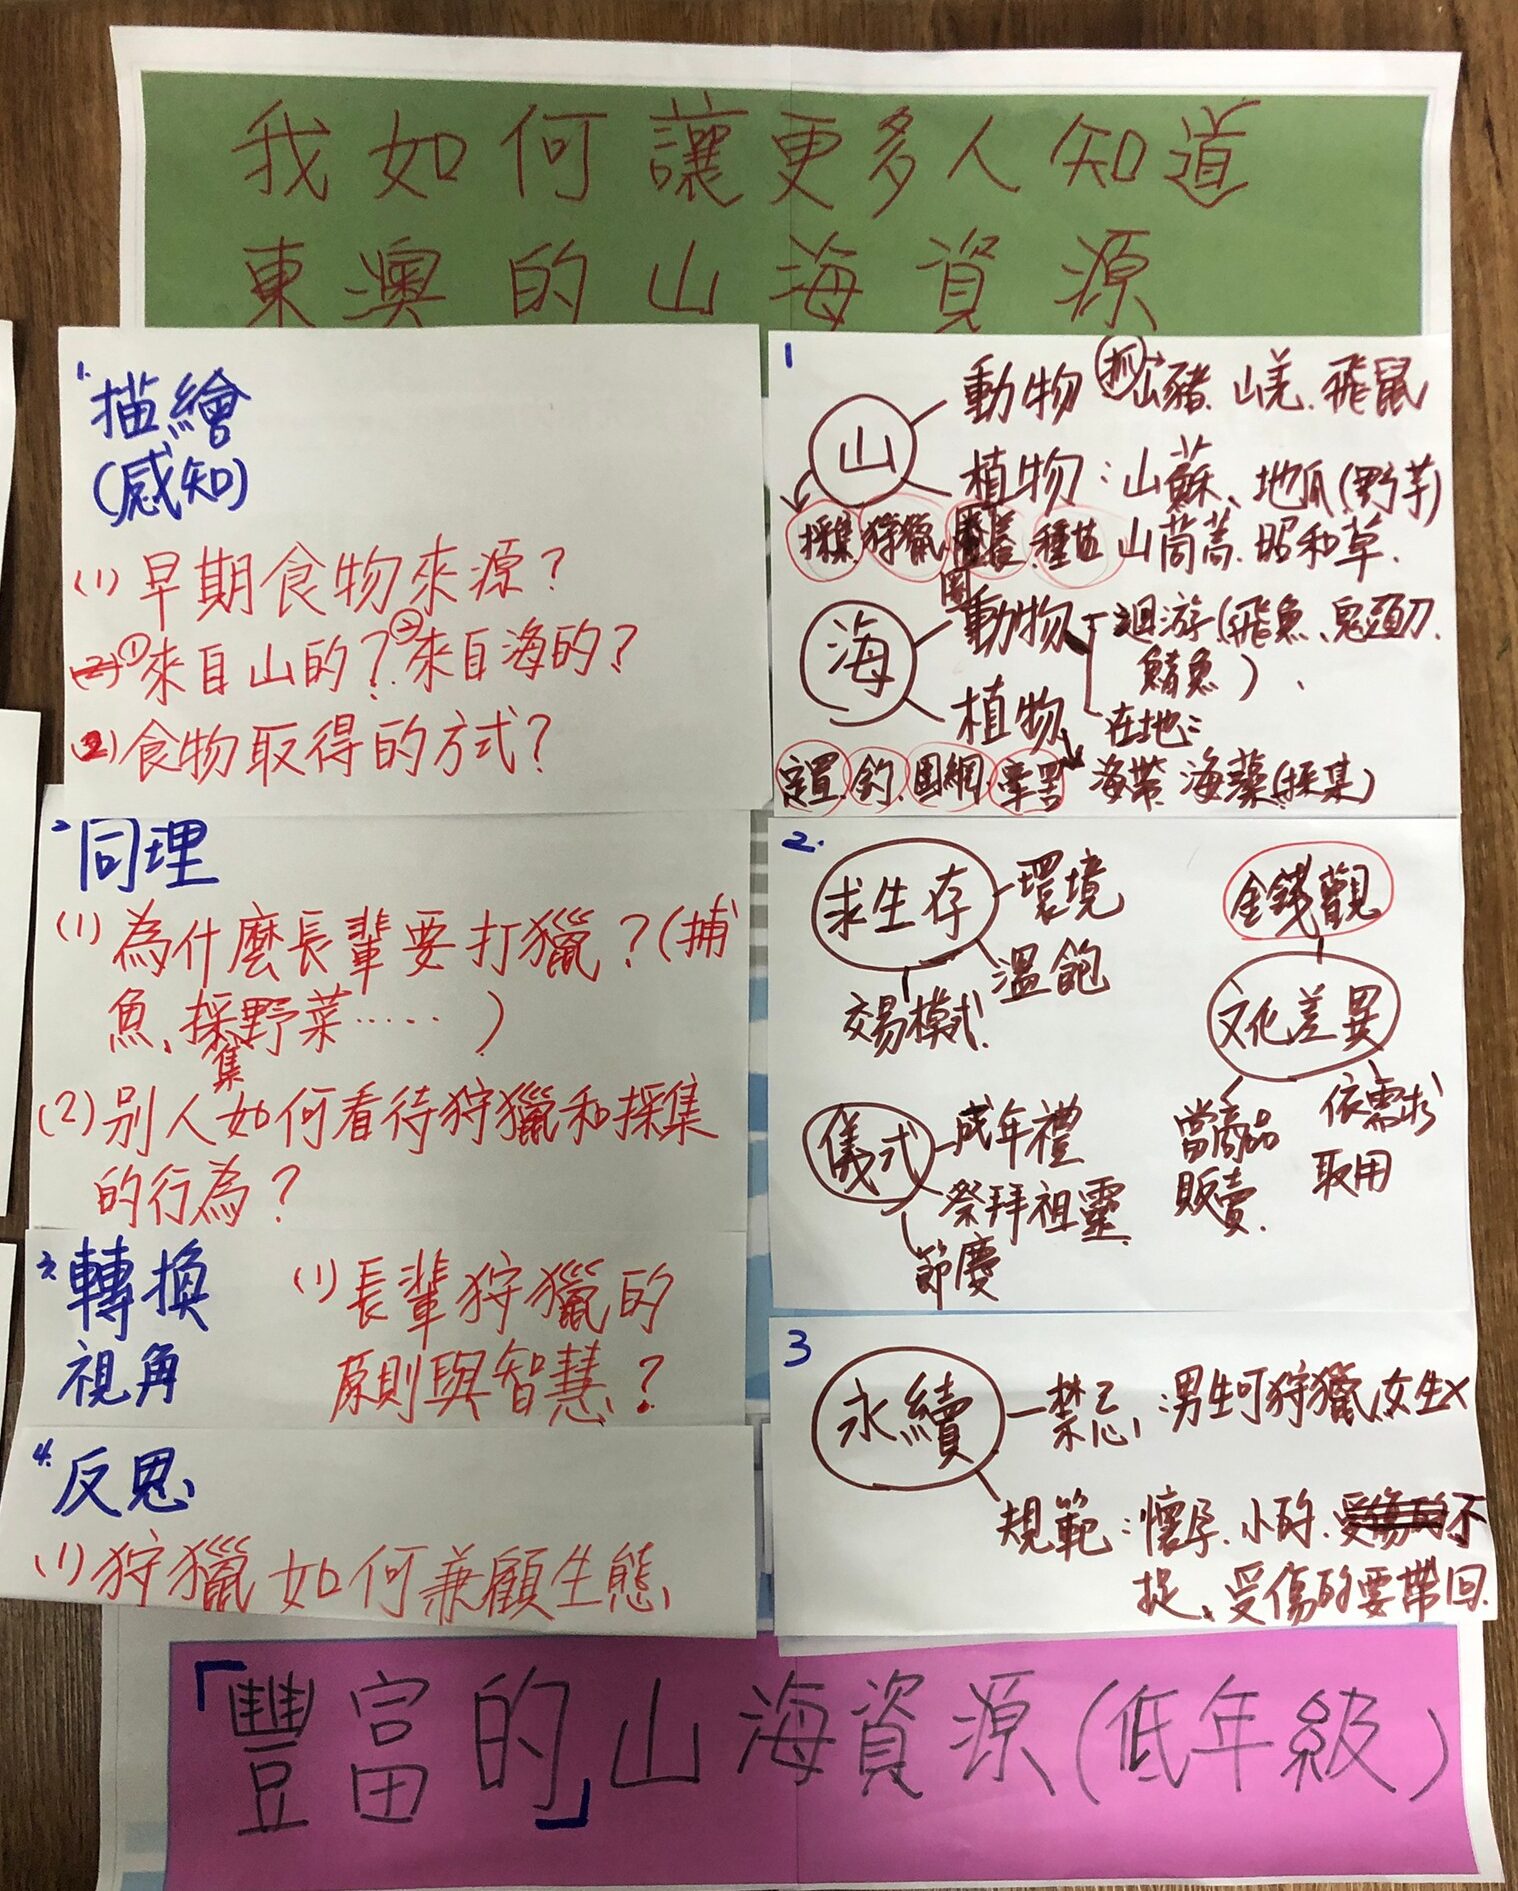 我如何讓更多人知道
東澳的山海資源
1.
描繪
(感知)
(1)早期食物來源?
①來自山的?②來自海的?
(2)食物取得的方式?
2.
同理
(1)為什麼長輩要打獵?(捕
魚、採集野菜……)
(2)別人如何看待狩獵和採集
的行為?
3.
轉換
視角
(1)長輩狩獵的
原則與智慧?
4.
反思
(1)狩獵如何兼顧生態
1
山
動物 抓→山豬、山羌、飛鼠
植物:山蘇、地瓜(野芋)
山茼蒿、昭和草.
採集 狩獵 圈養 種植
海
動物 迴游(飛魚、鬼頭刀、
鯖魚)、
在地:
植物
海帶、海藻(採集)
定置、釣、圍網、牽罟
2.
求生存
環境
溫飽
交易模式
金錢觀
文化差異
當商品
販賣.
依需求
取用
儀式
成年禮
祭拜祖靈
節慶
3
永續
禁忌:男生可狩獵,女生X
規範:懷孕、小的、不
捉、受傷的要帶回.
「豐富的」山海資源(低年級)